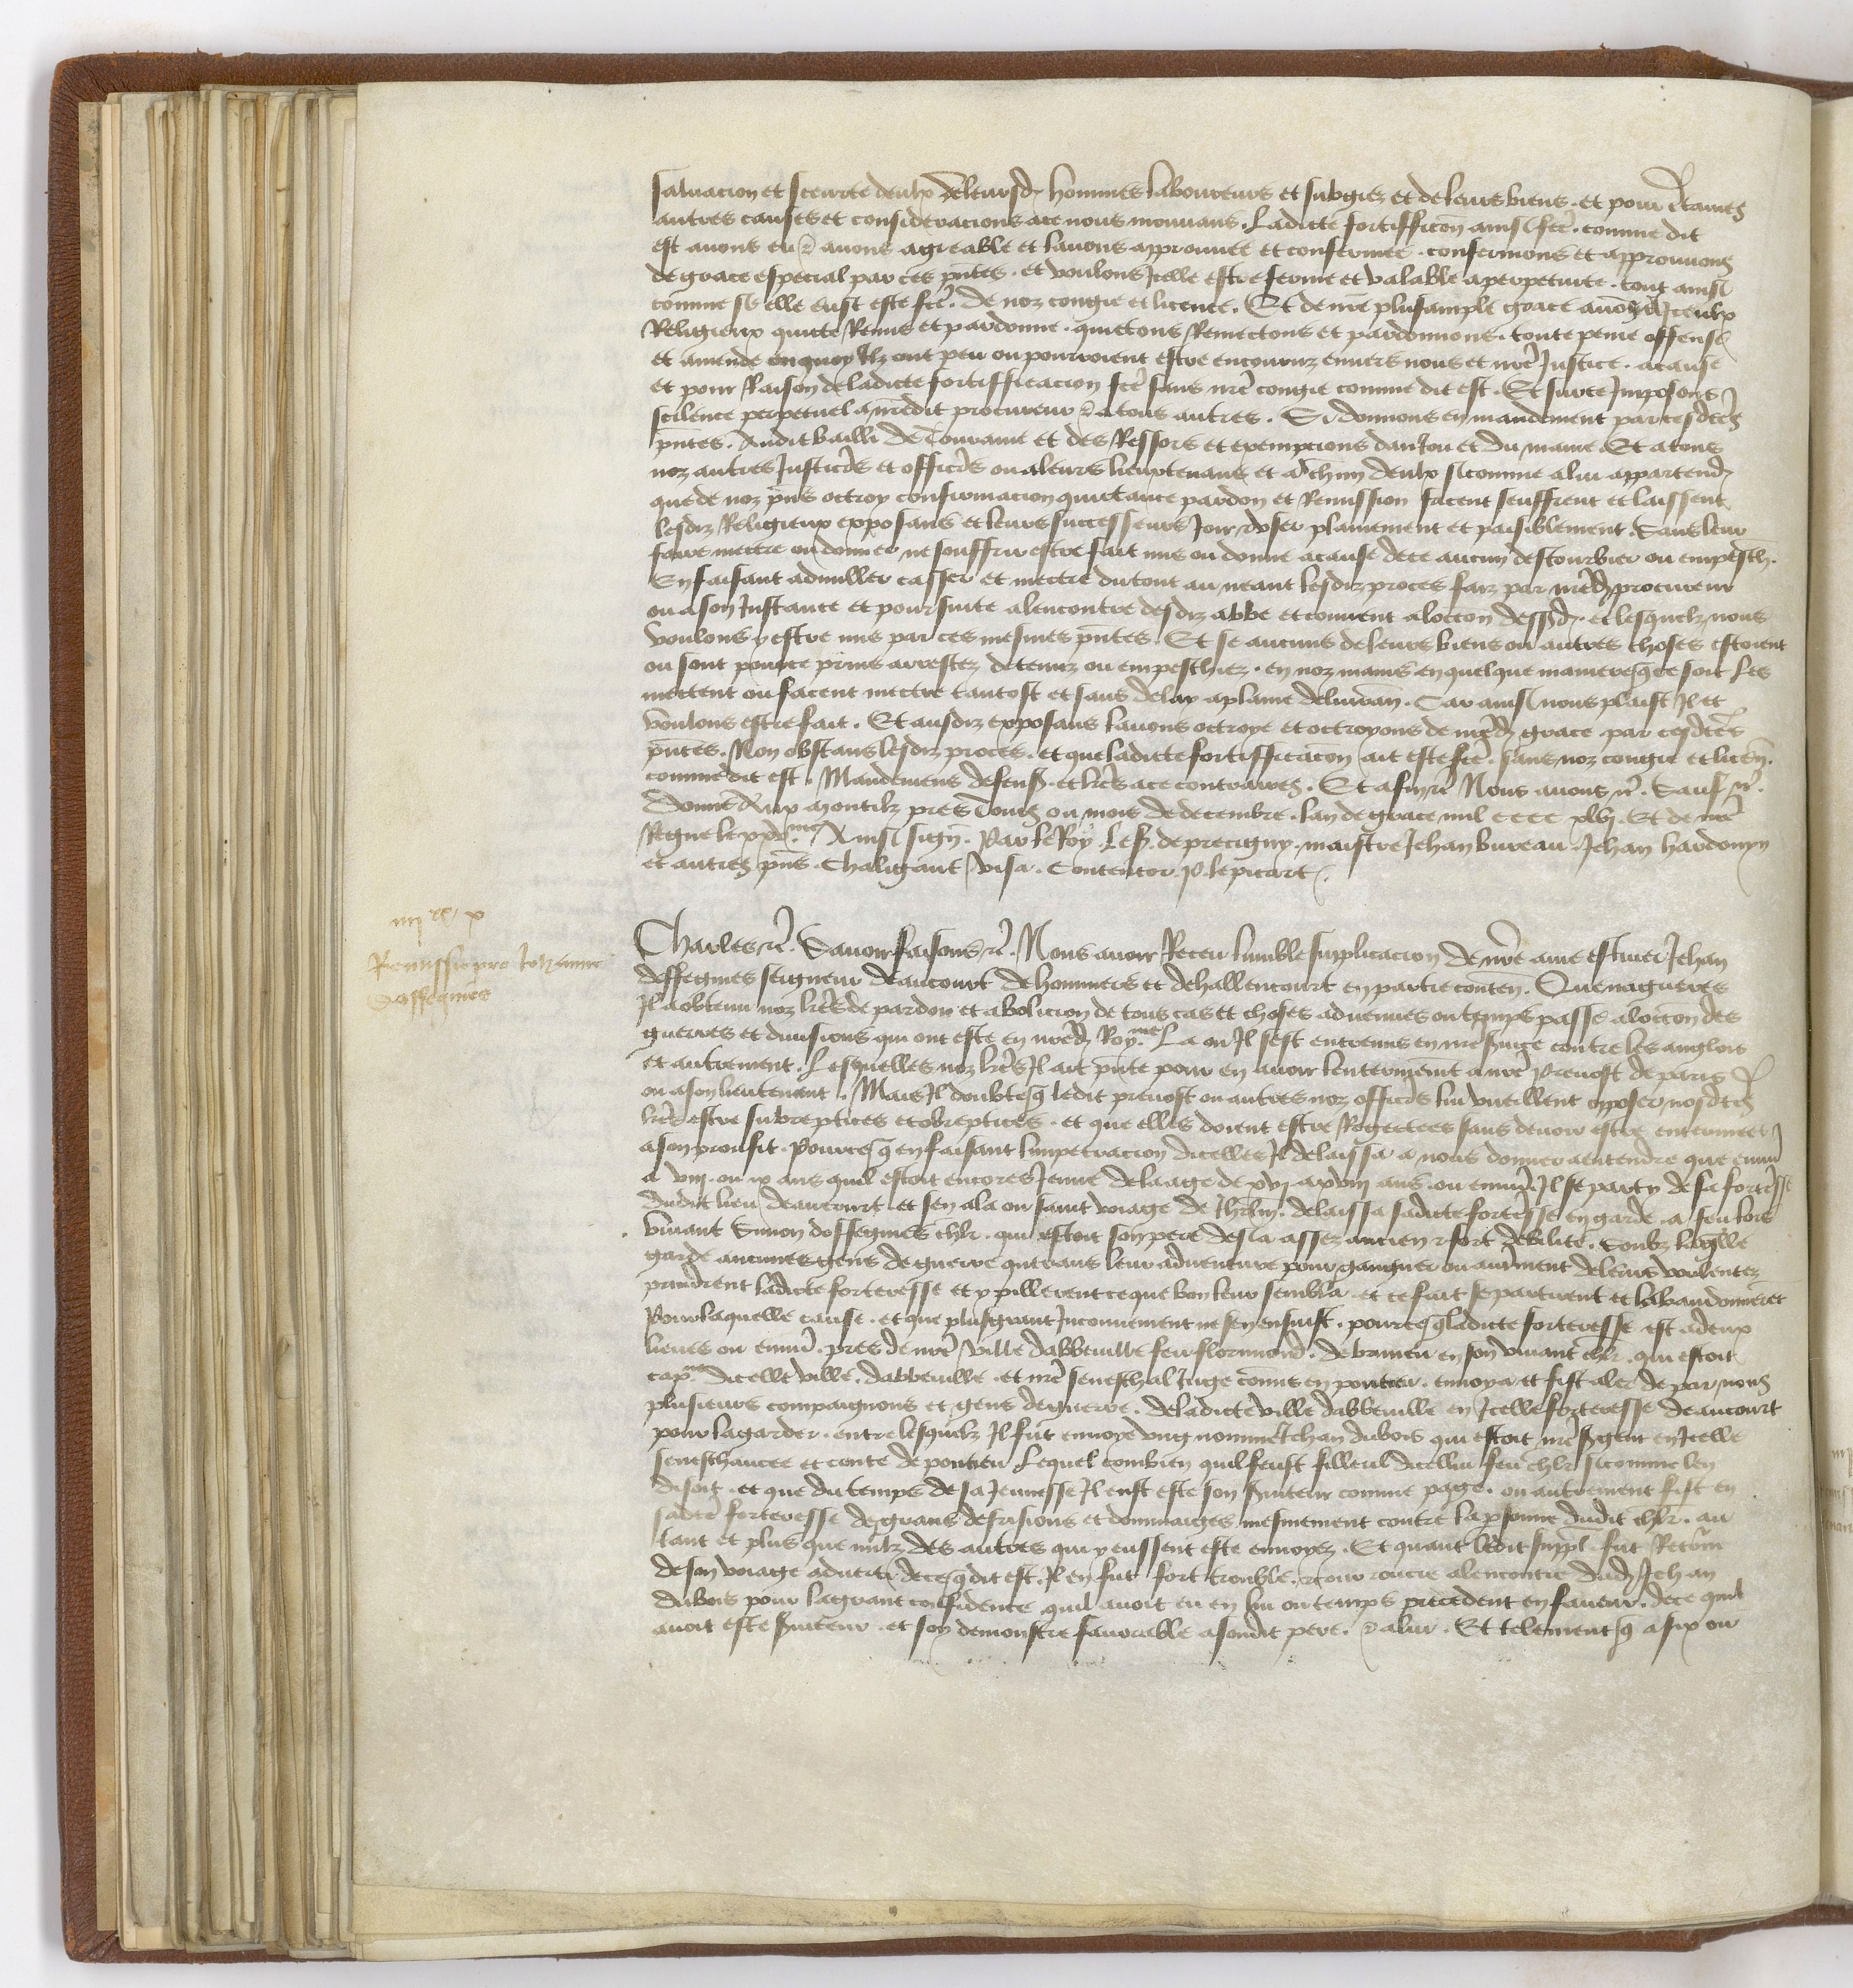 saluacion et sceurte deulx de leursd hommes laboureurs et subgiez et de leurs biens . et pour certaines
autres causes et consideracions a ce nous mouuans . Ladicte fortifficon ainsi fcē . comme dit
est auons eu et auons agreable et lauons approuuee et confermee . confermons et approuuons
de grace especial par ces pntes . et voulons Icelle estre ferme et valable a perpetuite . tout ainsi
comme se elle eust este fcē . de noz congie et licence . Et de nre plus ample grace auons a Iceulx
Religieux quicte Remis et pardonne . quictons Remectons et pardonnons . toute peine offense
et amende en quoy Ilz ont peu ou pourroient estre encouruz enuers nous et nre Justice . a cause
et pour Raison de ladicte fortifficacion fcē sans nre congie comme dit est . Et sur ce Imposons
scilence perpetuel a nredit procureur et a tous autres . Si donnons en mandement par ces dctes
pntes . Au dit bailli de Touraine et des Ressors et exempcions daniou et du maine . Et a tous
noz autres Justiciers et officiers ou a leurs lieuxtenans et a chun deulx si comme a lui appartiendr
que de noz pns octroy confirmacion quictance pardon et Remission facent seuffrent et laissent
lesdiz Religieux exposans et leurs successeurs Joir et vser plainement et paisiblement . Sans leur
faire mectre ou donner ne souffrir estre fait mis ou donne a cause de ce aucun destourbier ou empesch .
En faisant adnuller casser et mectre du tout au neant lesdiz proces faiz par nred procureur
ou a son Instance et poursuite alencontre desdiz abbe et conuent a loccon dessd . et lesquelz nous
voulons y estre mis par ces mesmes pntes . Et se aucuns de leurs biens ou autres choses estoient
ou sont pour ce prins arrestez detenuz ou empeschiez . en noz mains en quelque maniere que ce soit Les
mectent ou facent mectre tantost et sans delay a plaine deliuran . Car ainsi nous plaist Il et
voulons estre fait . Et ausdiz exposans lauons octroye et octroyons de nred grace par ces dctes
pntes . Non obstans lesdiz proces . et que ladicte fortifficacon ait este fcē . sans noz congie et licen .
comme dit est . Mandemens defens . et lres a ce contraires . Et afin rc Nous auons rc . Sauf rc .
Donne Aux Montilz pres Tours ou mois de decembre . lan de grace mil cccc xlvj . Et de nre
Regne le xxve . Ainsi signe . Par le Roy . Le s de precigny . maistre Jehan bureau . Jehan hardouyn
et autres pns . Chaligaut visa . Contentor . P . le picart .
iiij cc x
Remissio pro Johanne
Daffeignies
Charles rc . Sauoir faisons rc . Nous auoir Receu lumble supplicacion de nre ame escuier Jehan
deffegnies seigneur deaucourt de hommers et de hallencourt en partie conten . Que nagueres
Il a obtenu noz lres de pardon et abolicion de tous cas et choses aduenues ou temps passe a loccon des
guerres et diuisions qui ont este en nred Roy.me La ou Il sest entremis en nre seruice contre les anglois
et autrement . Lesquelles noz lres Il ait pnte pour en auoir lenterinement a nre Preuost de paris
ou a son lieutenent . Mais Il doubte que ledit preuost ou autres noz officiers lui vueillent opposer nosdctes
lres estre subreptices et obreptices . et que elles doient estre Regectees sans deuoir estre enterinees
a son proufit . Pour ce que en faisant limpetracion dicelles Il delaissa a nous donner a entendre que enuiron
a viij . ou ix ans quil estoit encores Jeune de laage de xvj . a xviij ans . ou enuiron . Il se party de sa forteresse
dudit lieu deaucourt . et sen ala ou saint voiage de Jherlm . delaissa sadicte forteresse en garde . a feu lors
viuant Simon deffegnies chlr . qui estoit son pere desia assez ancien et fort debilite . Soubz laquelle
garde aucunes gens de guerre querans leur aduenture pour gaigner ou autrement de leurs voulentez
prindrent ladicte forteresse et y pillerent ce que bon leur sembla . et ce fait se partirent et labandonnerent
Pour laquelle cause . et que plus grant Inconuenient ne sen ensuist . pour ce que ladicte forteresse est a deux
lieues ou enuiron . pres de nre ville dabbeuille feu florimond . de brimeu en son viuant chlr . qui estoit
cap.ne dicelle ville . dabbeuille . et nre seneschal Juge commis en pontieu . enuoya et fist aler de par nous
plusieurs compaignons et gens de guerre . de ladicte ville dabbeuille en Icelle forteresse deaucourt
pour la garder . entre lesquelz Il fut enuoye vng nomme Jehan dubois qui estoit nre sergent en Icelle
seneschaucee et conte de pontieu Lequel combien quil feust filleul dicellui feu chlr si comme len
disoit . et que du temps de sa Jeunesse Il eust este son seruiteur comme page . ou autrement fist en
sadicte forteresse de grans desrisions et dommaiges mesmement contre la personne dudit chlr . au
tant et plus que nulz des autres qui y eussent este enuoyez . Et quant ledit suppl . fut Retourne
de son voiage aduerti de ce que dit est . Il en fut fort trouble . et courroucie alencontre dud Jehan
dubois pour la grant confidence quil auoit eu en lui ou temps precedent en faueur . de ce quil
auoit este seruiteur . et soy demonstre fauorable a sondit pere . et a lui . Et telement que a six ou